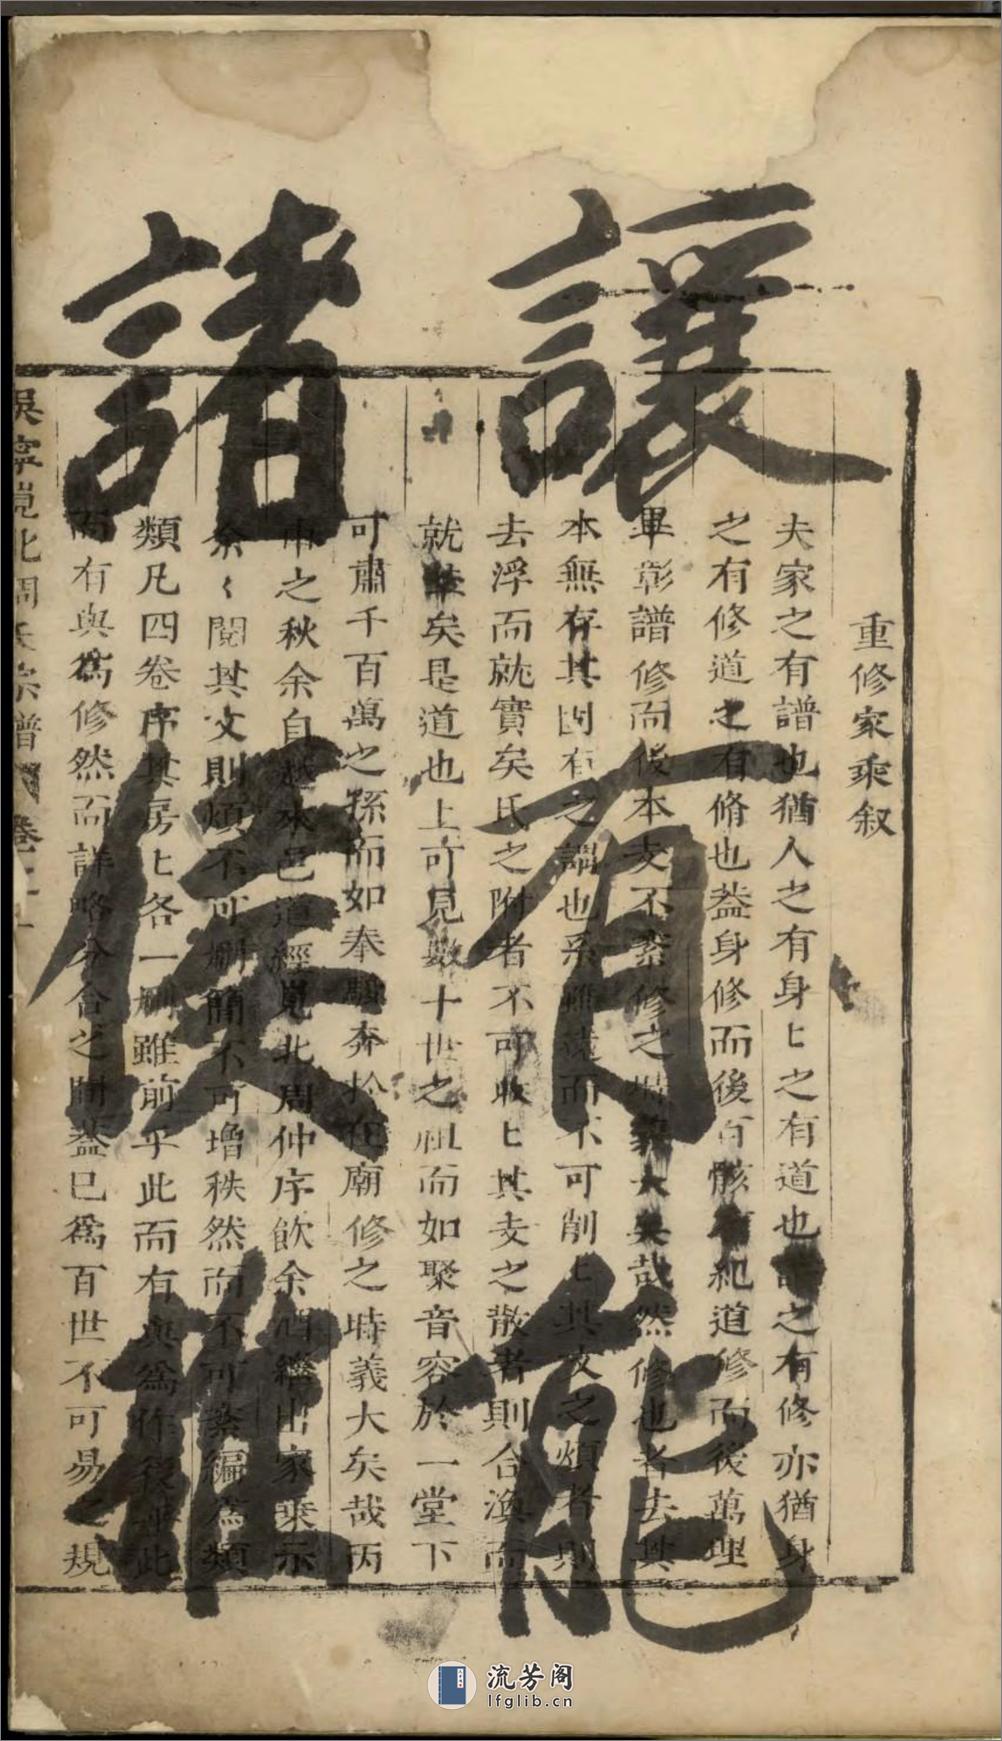 重修家乘叙
夫家之有譜也猶人之有身匕之有道也譜之有修亦猶身
之有修道之有脩也葢身修而後百骸有紀道修而後萬理
畢彰譜修而後本支不紊修之時義大矣哉然修也者去其
本無存其固有之謂也系雖遠而不可削匕其文之煩者則
去浮而就實矣氏之附者不可收匕其支之散者則合渙而
就萃矣是道也上可見數十世之祖而如聚音容於一堂下
可肅千百萬之孫而如奉駿奔扵在廟修之時義大矣哉丙
申之秋余自越來邑道經峴北周仲序飲余酒繼出家乘示
余〻閱其文則煩不可刪簡不可增秩然而不可紊編爲類
類凡四卷序其房匕各一刪雖前乎此而有與爲作後乎此
而有與爲修然而詳略分合之間葢已爲百世不可易之規
吳寧峴北周氏宗譜 卷之一
讓有能
諸侯雄
流芳阁
lfglib.cn